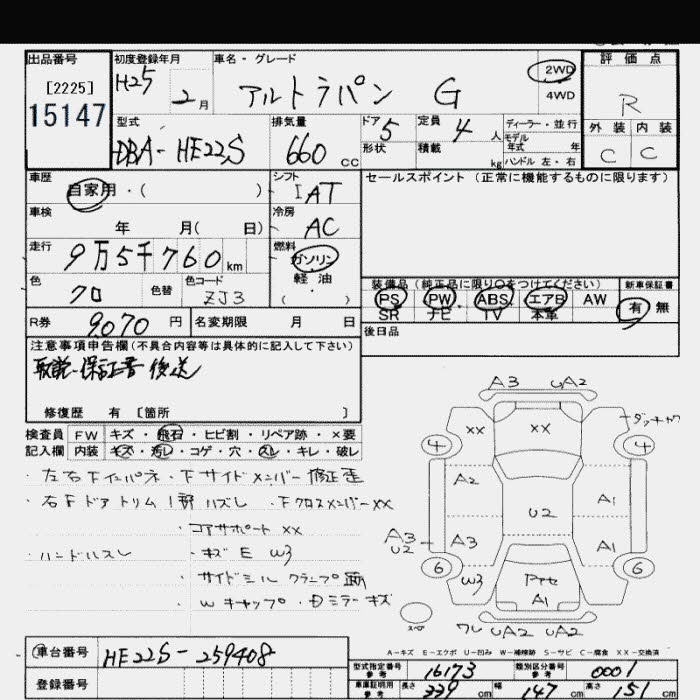 出品番号 初度登録年月 車名・グレード 評価点
[2225] H25 2WD
15147 2月 アルトラパン G 4WD R
型式 排気量 ドア 定員 ディーラー・並行 外装 内装
DBA-HE22S 660cc 5 4人 モデル年式 年 C C
形状 積載 kg ハンドル 左・右
車歴 シフト セールスポイント (正常に機能するものに限ります)
自家用・( ) IAT
車検 冷房
年 月( 日) AC
走行 燃料
9万5千760km ガソリン
軽油
色 色替 色コード ( ) 装備品 (純正品に限り○をつけてください) 新車保証書
クロ ZJ3 PS PW ABS エアB AW 有 無
SR ナビ TV 本革
R券 9070円 名変期限 月 日 後日品
注意事項申告欄(不具合内容等は具体的に記入して下さい)
取説・保証書 後送
修復歴 有 [箇所 ]
A3 UA2
検査員 FW キズ・飛石・ヒビ割・リペア跡・×要
記入欄 内装 キズ・汚レ・コゲ・穴・スレ・キレ・破レ
XX XX ダッキャク
4 4
・左右Fインパネ・Fサイドメンバー修正歪
・右FドアトリムI部ハズレ ・FクロスメンバーXX
・コアサポートXX
・ハンドルスレ ・キズE W3
・サイドシル クランプ
・Wキャップ・ミラーキズ
A2 A1
U2
A3 U2 A3 A1
6 6
W3 A1
スペア ワレ UA2 UA2
A-キズ E-エクボ U-凹み W-補修跡 S-サビ C-腐食 XX-交換済
車台番号 HE22S-259408 型式指定番号 参考 16173 類別区分番号 参考 0001
登録番号 車庫証明用 参考 長さ 339cm 幅 147cm 高さ 151cm